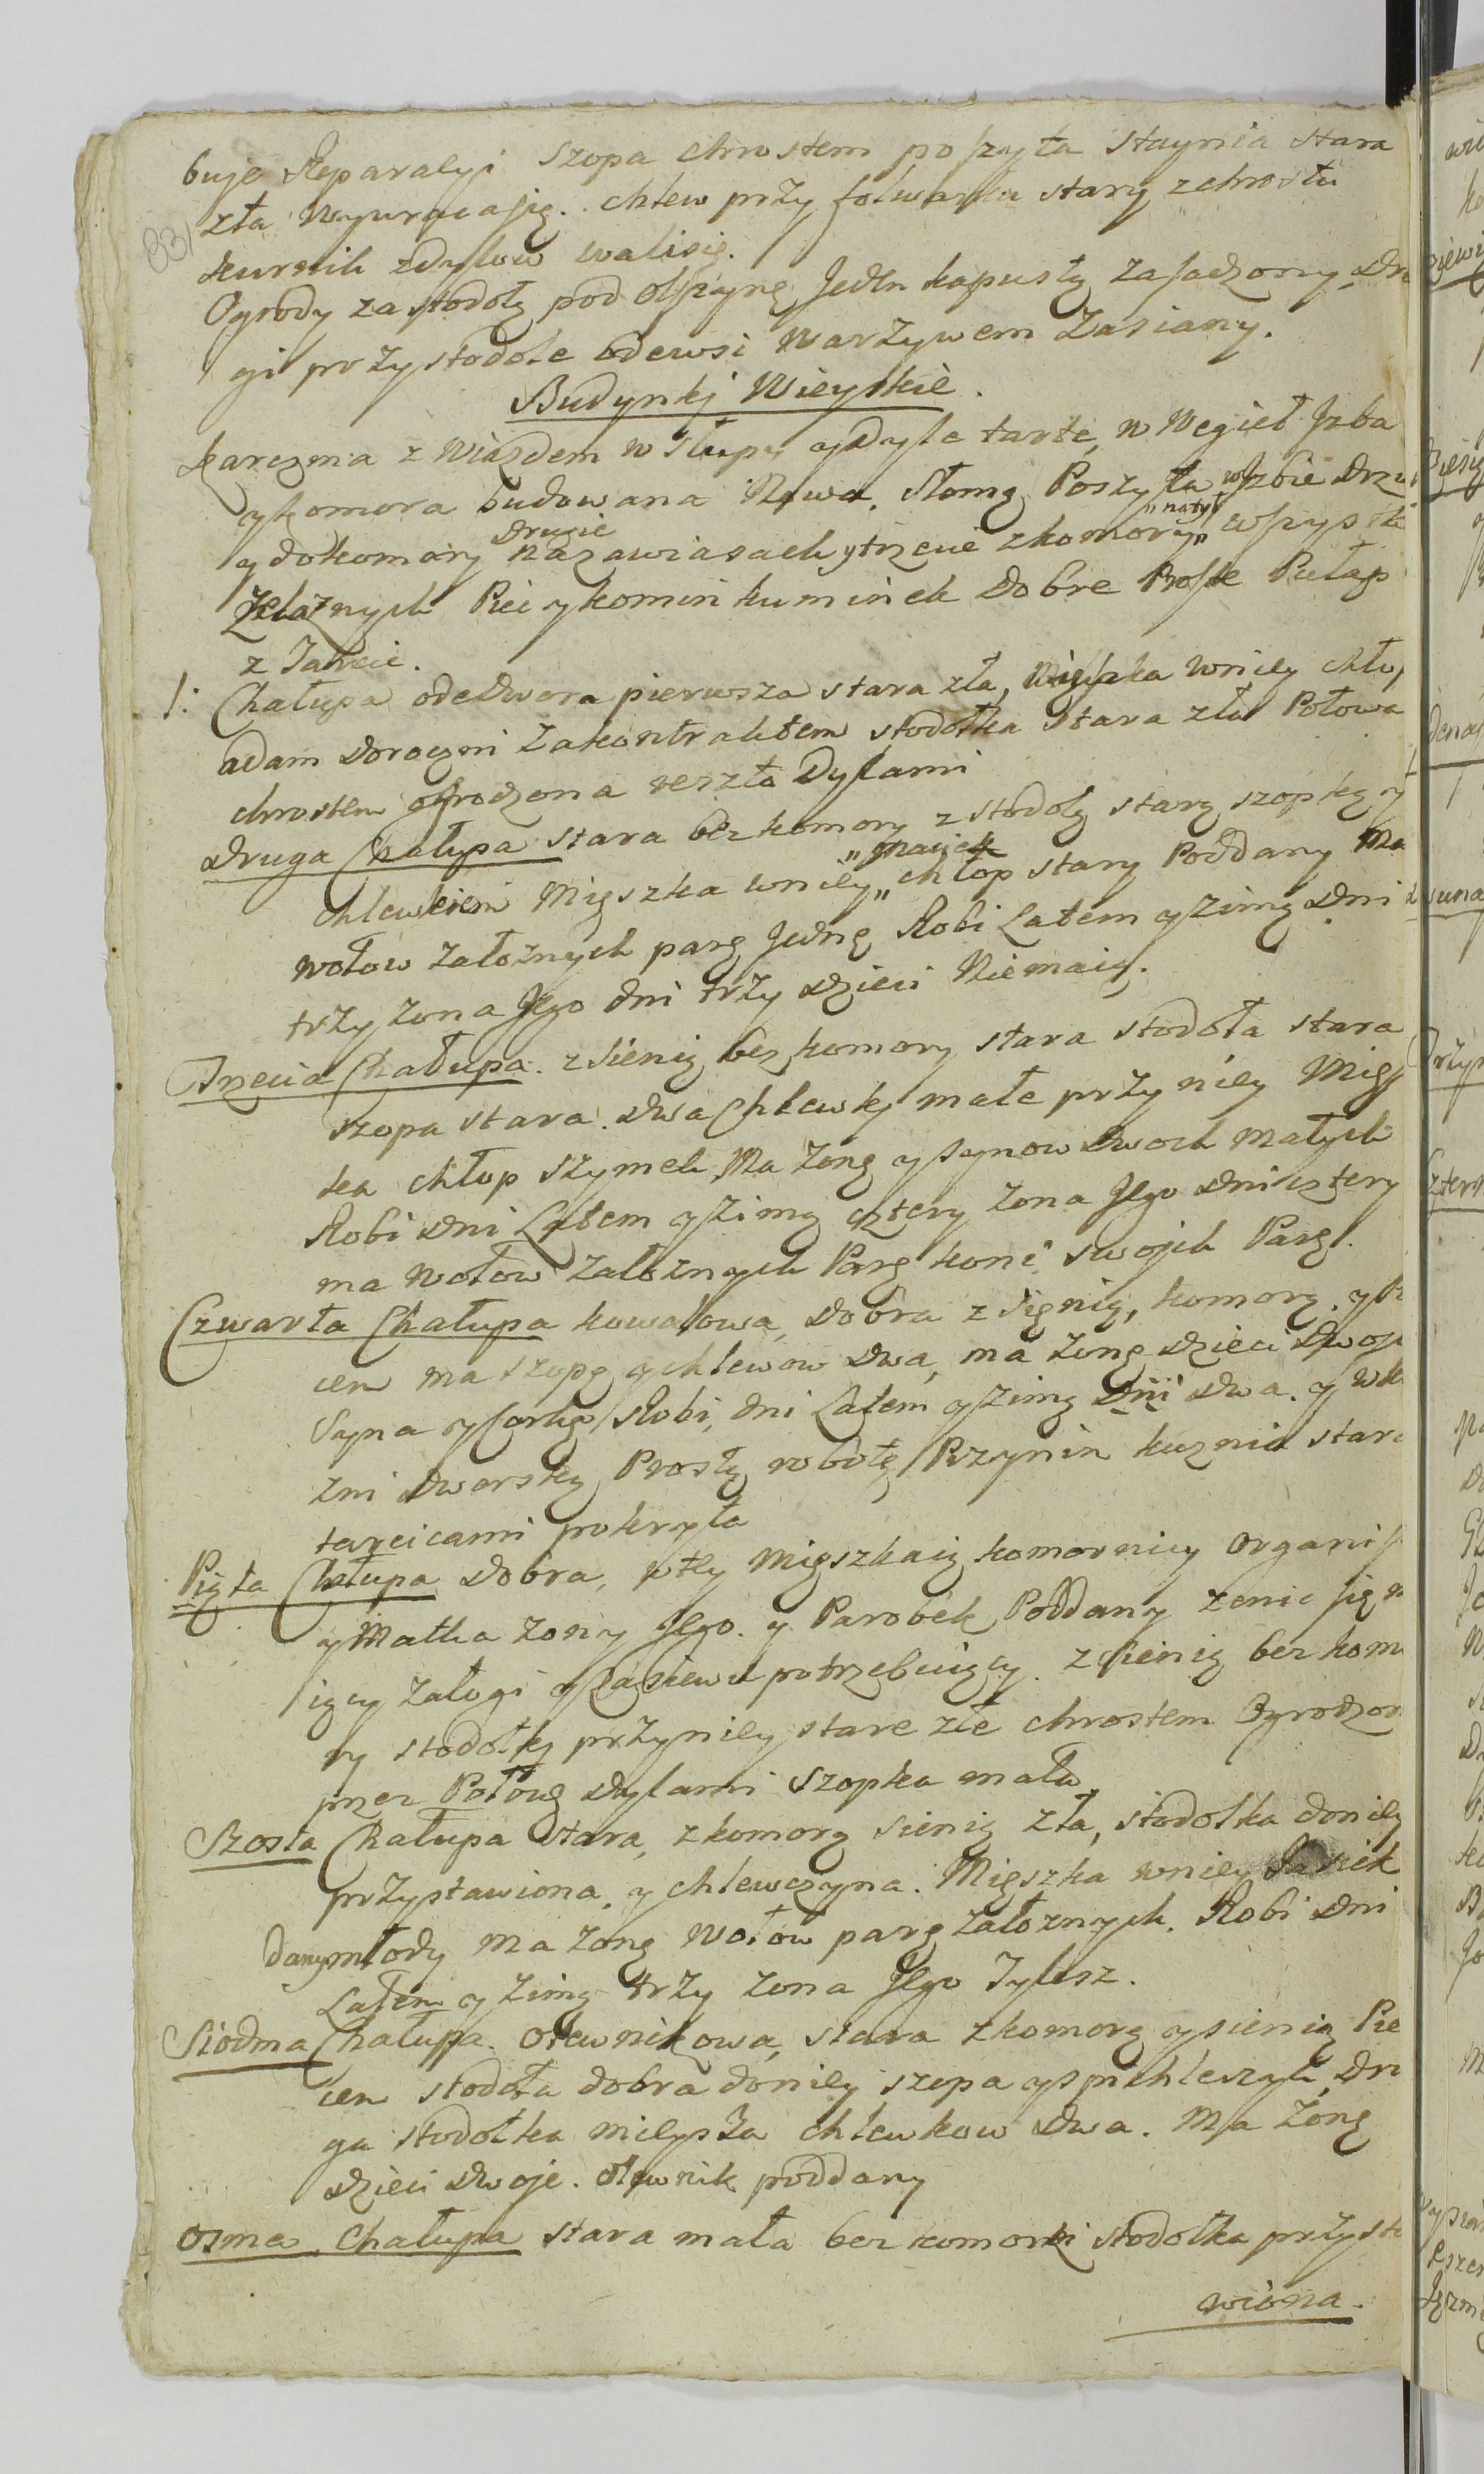 buje Reparacyi Szopa chrostem poszyta staynia stara
zła wywracasię. chlew przy folwarku stary z chrostu
kurnik zdylow walisię.
Ogrody za stodołą pod olszyną Jedn kapustą zasadzony, Dru
gi przy stodole odewsi Warzywem Zasiany.
Budynki Wieyskie.
Karczma z Wiazdem w słupy y dyle tarte, w Węgieł Izba
y komora budowana Nowa, Słomą Poszyta w Izbie Drzwi
y do komory drugie na zawiasach y trzecie z komory „na tył" wszystk
Żelaznych Piec y komin kuminek Dobre Proste Pułap
z Tarcic.
1: Chałupa odedwora pierwsza stara zła, Mięszka wniey chłop
adam Doroczni Zakontraktem stodołka stara zła Połowa
chrostem ogrodzona reszta Dylami
Druga Chałupa stara bez komory z stodołą starą szopką y
chlewkiem Mięszka wniey „Maciek" chłop stary Poddany Ma
wołow Załoznych parę Jednę Robi Latem y Zimą Dni
trzy Zona Jego dni trzy dzieci Niemaią.
Trzecia Chałupa. z sienią bez komory stara stodoła stara
szopa stara. dwa Chlewki małe przy niey Mięsz
ka chłop Szymek Ma Zonę y synow dwoch Małych
Robi Dni Latem y Zimą cztery Zona Jego Dni cztery
ma Wołow Załoznych Parę koni swojch Parę.
Czwarta Chałupa kowalowa, dobra z sięnią, komorą. y
cem ma szopę y chlewow dwa, ma Zonę dzieci dwoje
Syna y Corkę Robi, dni Latem y Zimą Dni dwa. y w ku
zni Dworską Prostą robotę Pszynin kuznia stara
tarcicami pokryta
Piąta Chałupa Dobra, w tey Mięszkaią komornicy Organis
y Matka Zony Jego. y Parobek Poddany zenic się m
iący Załogi y Zasiewu potrzebuiący. z Sienią bez komo
ry stodołki przyniey stare złe chrostem Ogrodzon
przez Połowę Dylami Szopka mała.
Szosta Chałupa stara, z komorą sienią zła, stodołka doniey
przystawiona, y chlewczyna. Mięszka wniey Jasiek
dany młody Ma Zonę Wołow parę Załoznych. Robi Dni
Latem y Zimą trzy Zona Jego Tylesz.
Siodma Chałupa. Otawnikowa, stara z komorą y sienią Pie
cem stodoła dobra doniey szopa y spichleszyk, Dru
ga stodołka mieysza chlewkow dwa. Ma Zonę
dzieci dwoje. otawnik poddany
Osma Chałupa stara mała bez komorki stodołka przysta
wiona.